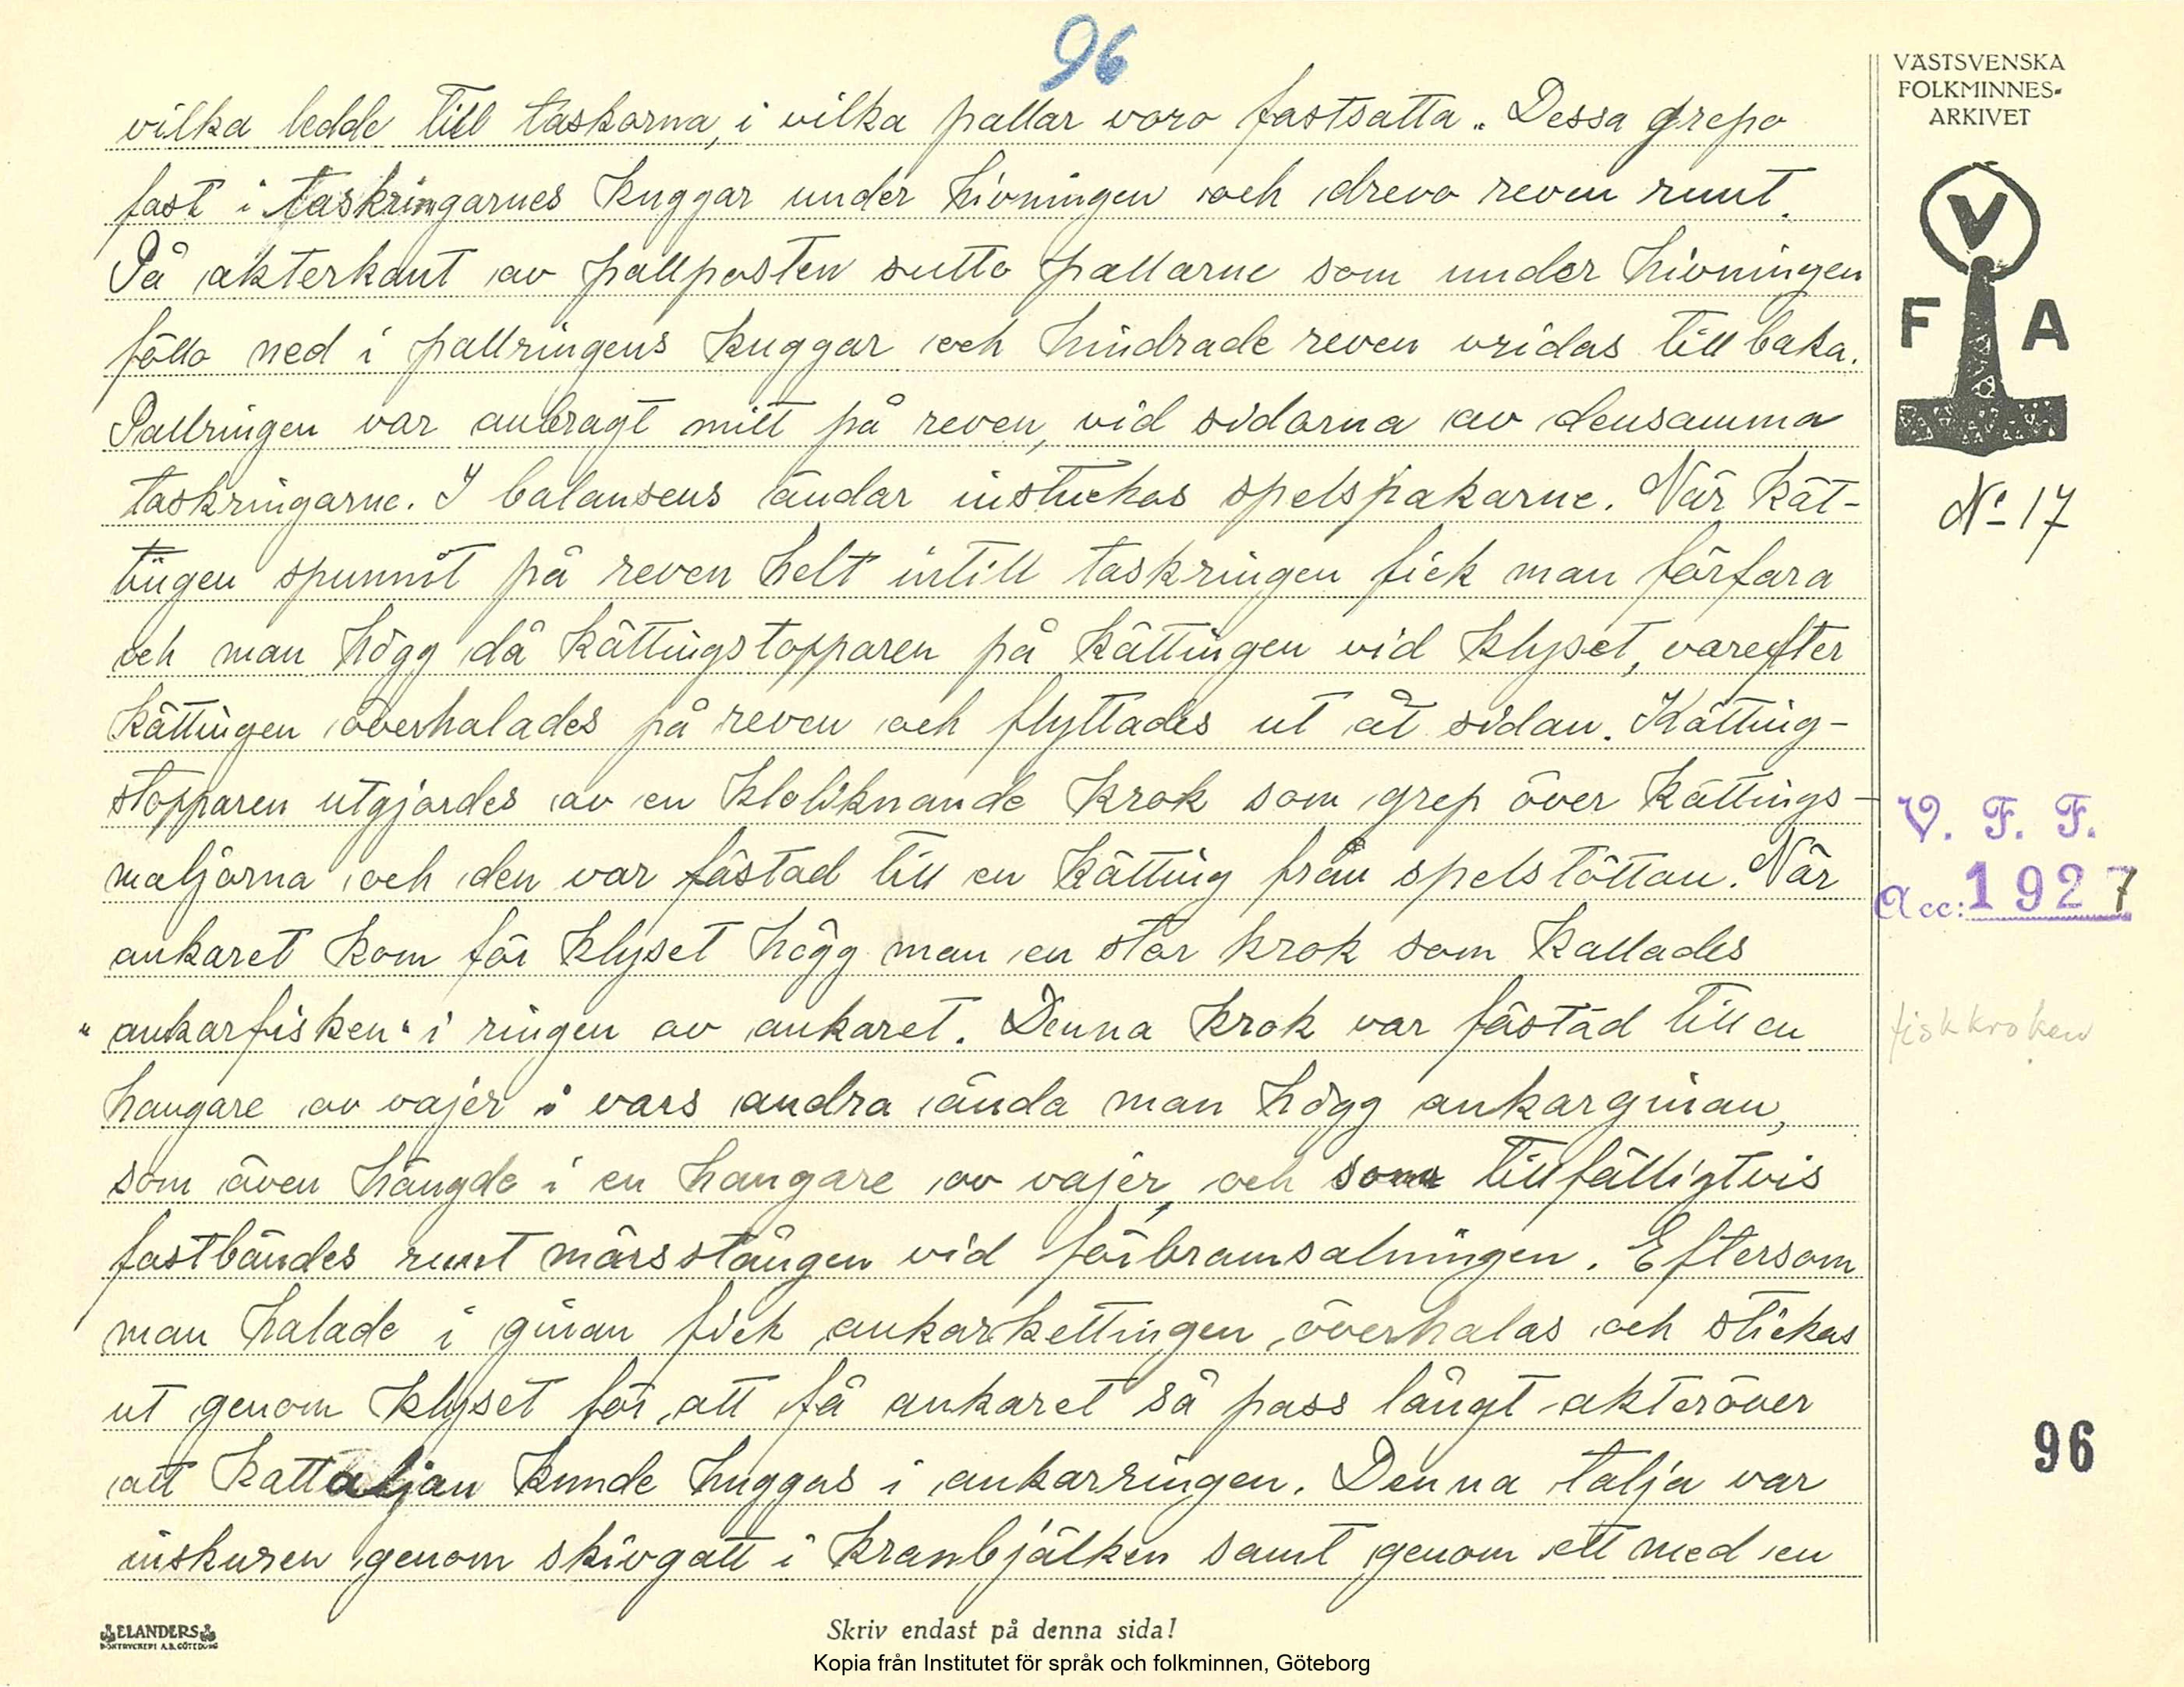 96
vilka ledde till taskarna, i vilka pallar voro fastsatta. Dessa grepo
fast i taskringarnes kuggar under hivningen och drevo reven runt.
På akterkant av pallposten sutto pallarne som under hivningen
föllo ned i pallringens kuggar och hindrade reven vridas till baka.
Pallringen var anbragt mitt på reven, vid sidorna av densamma
taskringarne. I balansens ändar instuckos spelspakarne. När kät-
tingen spunnit på reven helt intill taskringen fick man förfara
och man högg då kättingstopparen på kättingen vid klyset, varefter
kättingen överhalades på reven och flyttades ut åt sidan. Kätting-
stopparen utgjordes av en kloliknande krok som grep över kättings-
maljorna och den var fästad till en kätting från spelstöttan. När
ankaret kom för klyset högg man en stor krok som kallades
"ankarfisken" i ringen av ankaret. Denna krok var fästad till en
hangare av vajer i vars andra ända man högg ankarginan,
som även hängde i en hangare av vajer, och som tillfälligtvis
fastbändes runt märsstången vid förbramsalningen. Eftersom
man halade i ginan fick ankarkettingen överhalas och stickas
ut genom klyset för att få ankaret så pass långt akteröver
att kattaljan kunde huggas i ankarringen. Denna talja var
inskuren genom skivgatt i kranbjälken samt genom ett med en
VÄSTSVENSKA
FOLKMINNES-
ARKIVET
V
F A
No 17
V. F. F.
Acc: 1927
fiskkroken
96
ELANDERS
BOKTRYCKERI A.B. GÖTEBORG
Skriv endast på denna sida!
Kopia från Institutet för språk och folkminnen, Göteborg